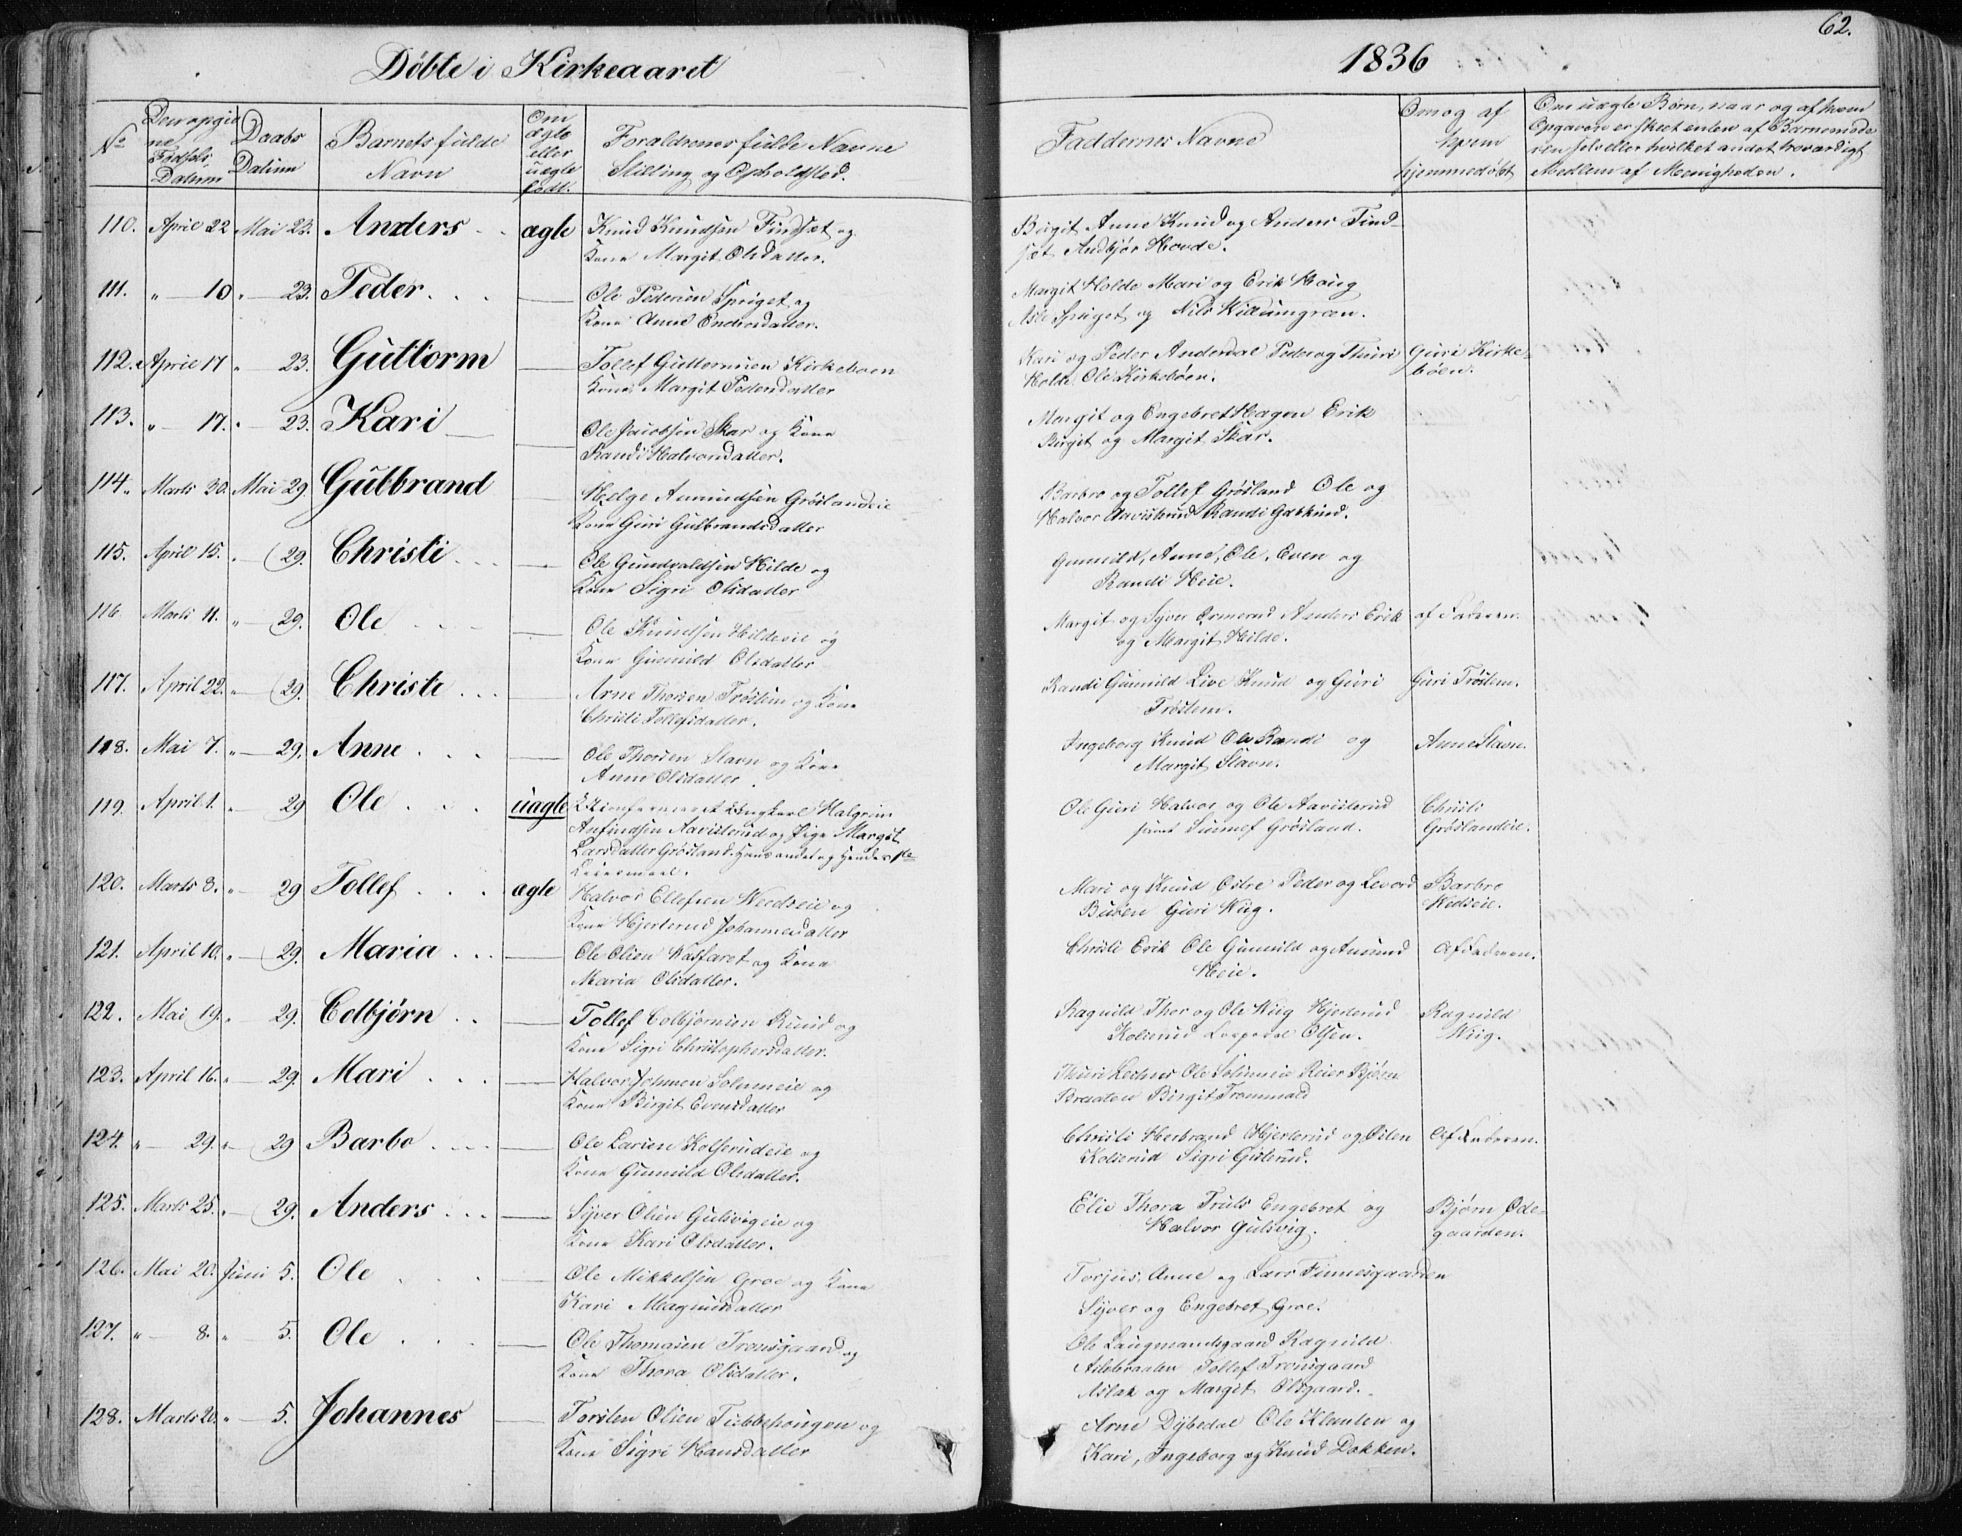 Døbte i Kirkeaaret
1836
62.
No
Daabs
Datum
Barnets fulde
Navn
Om
ægte
eller
uægte
født.
Forældrenes fulde Navne
Stilling og Opholdsted.
Faddernes Navne
Om og af
hvem
hjemmedøbt
Om uægte Børn, naar og af hvem
Opgaven er skeet enten af Barnemode
ren selv eller hvilket andet troværdigt
Medlem af Menigheden.
110. April 22 Mai 23. Anders ægte Knud Knudsen Findsæt og
Kone Margit Olsdatter.
Birgit Anne Knud og Anders Find-
sæt Audbjør Hovde.
111. " 10 " 23. Peder Ole Pedersen Spriget og
Kone Anne Endresdatter.
Margit Holde Mari og Erik Haug
Asle Spriget og Nils
112. April 17 " 23. Guttorm Tollef Guttormsen Kirkeboen
Kone Margit Pedersdatter
Kari og Peder Anderdal Peder og Thuri
Holde Ole Kirkebøen.
Guri Kirke-
bøen.
113. " 17. " 23. Kari Ole Jacobsen Skar og Kone
Randi Halvorsdatter.
Margit og Engebret Hagen Erik
Birgit og Margit Skar.
114. Marts 30. Mai 29. Gulbrand Helge Amundsen Grøslandeie
Kone Guri Gulbrandsdatter
Barbro og Tollef Grøsland Ole og
Halvor Aavisterud Randi
115. April 15. " 29. Christi Ole Gundvaldsen Hilde og
Kone Sigri Olsdatter
Gunnild, Anne, Ole, Even og
Randi Heie.
116. Marts 11. " 29. Ole Ole Knudsen Hildeeie og
Kone Gunnild Olsdatter
Margit og Syver Ormerud Anders Erik
og Margit Hilde.
af Faderen.
117. April 22. " 29. Christi Arne Thorsen Trøstem og Kone
Christi Tollefsdatter.
Randi Gunnild Live Knud og Guri
Trøstem.
Guri Trøstem.
118. Mai 7. " 29. Anne Ole Thorsen Slavn og Kone
Anne Olsdatter.
Ingeborg Knud Ole Randi og
Margit Slavn.
Anne Slavn.
119. April 1. " 29 Ole uægte Ungkarl Halgrim
Anfindsen Aavisterud og Pige Margit
Larsdatter Grøsland. Hans andet og Hendes 1te
Leiermaal.
Ole Guri Halvor og Ole Aavisterud
samt Sunnef Grøsland.
Christi
Grøslandeie.
120. Marts 8. " 29 Tollef ægte Halvor Ellefsen Weedseie og
Kone Hjerterud Johannesdatter
Mari og Knud Østre Peder og Levord
Buben Guri Wiig.
Barbro
Widseie.
121. April 10. " 29. Maria Ole Olsen Wasfaret og Kone
Maria Olsdatter.
Christi Erik Ole Gunnild og Amund
Heie.
Af Faderen.
122. Mai 19. " 29. Colbjørn Tollef Colbjørnsen Ruud og
Kone Sigri Christophersdatter.
Ragnild Thor og Ole Wiig Hjerterud
Kolserud Olsen.
Ragnild
Wiig.
123. April 16. " 29. Mari Halvor Johnsen Solemeie og
Kone Birgit Evensdatter
Thuri Ole Reier Bjørn
Birgit Trommald
124. " 29. " 29 Barbo Ole Larsen Kolserudeie og
Kone Gunnild Olsdatter.
Christi Herbrand Hjerterud og Østen
Kolserud Sigri Gislerud.
Af Faderen.
125. Marts 25. " 29. Anders Syver Olsen Gulsvigeie og
Kone Kari Olsdatter.
Elie Thora Truls Engebret og
Halvor Gulsvig.
Bjørn Øde-
gaarden.
126. Mai 20. Juni 5. Ole Ole Mikkelsen Groe og Kone
Kari Magnusdatter
Torjus, Anne og Lars Finnesgaarden
Syver og Engebret Groe.
127. " 8. " 5. Ole Ole Thomasen Tronsgaard og
Kone Thora Olsdatter.
Ole Langmandsgaard Ragnild
Tollef Tronsgaard
Aslak og Margit Olsgaard.
128. Marts 20. " 5. Johannes Torsten Olsen Tubbehougen og
Kone Sigri Hansdatter
Arne Dybedal Ole Klanten og
Kari, Ingeborg og Knud Dokken.